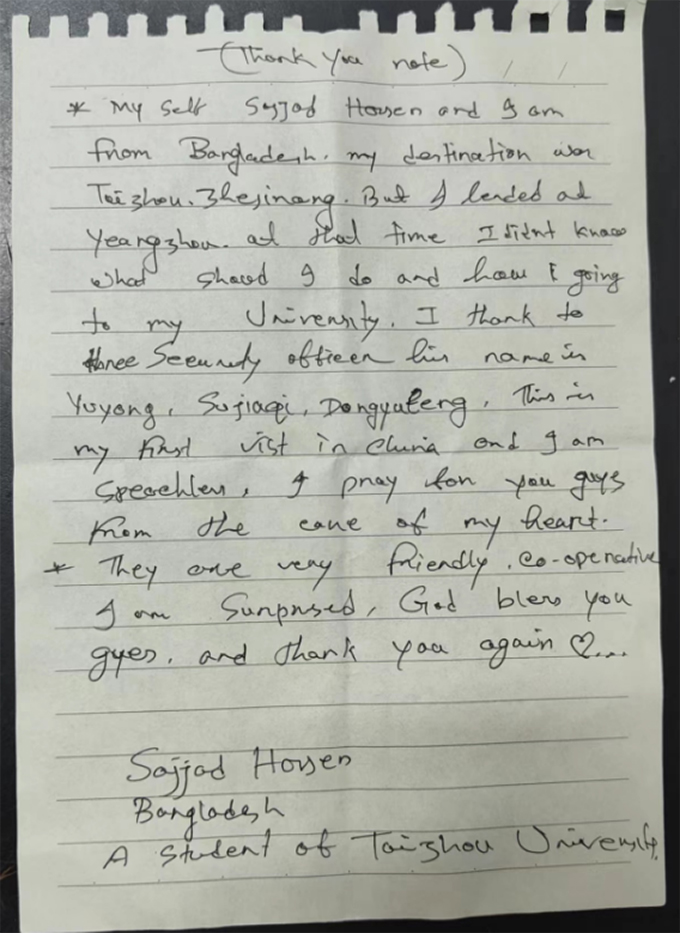 (Thank You note)
* My self Sajjad Hossen and I am
from Bangladesh. my destination was
Taizhou. Zhejinang. But I landed at
Yeangzhou. at that time I didnt know
what shoud I do and how I going
to my University. I thank to
three Security officer his name is
Yuyong, Sujiaqi, Dongyuteng, This is
my first vist in china and I am
speechless, I pray for you guys
from the core of my heart.
* They are very friendly. co-operative
I am Surprised, God bless you
gyes. and thank you again ♡...
Sajjad Hossen
Bangladesh
A Student of Taizhou University.